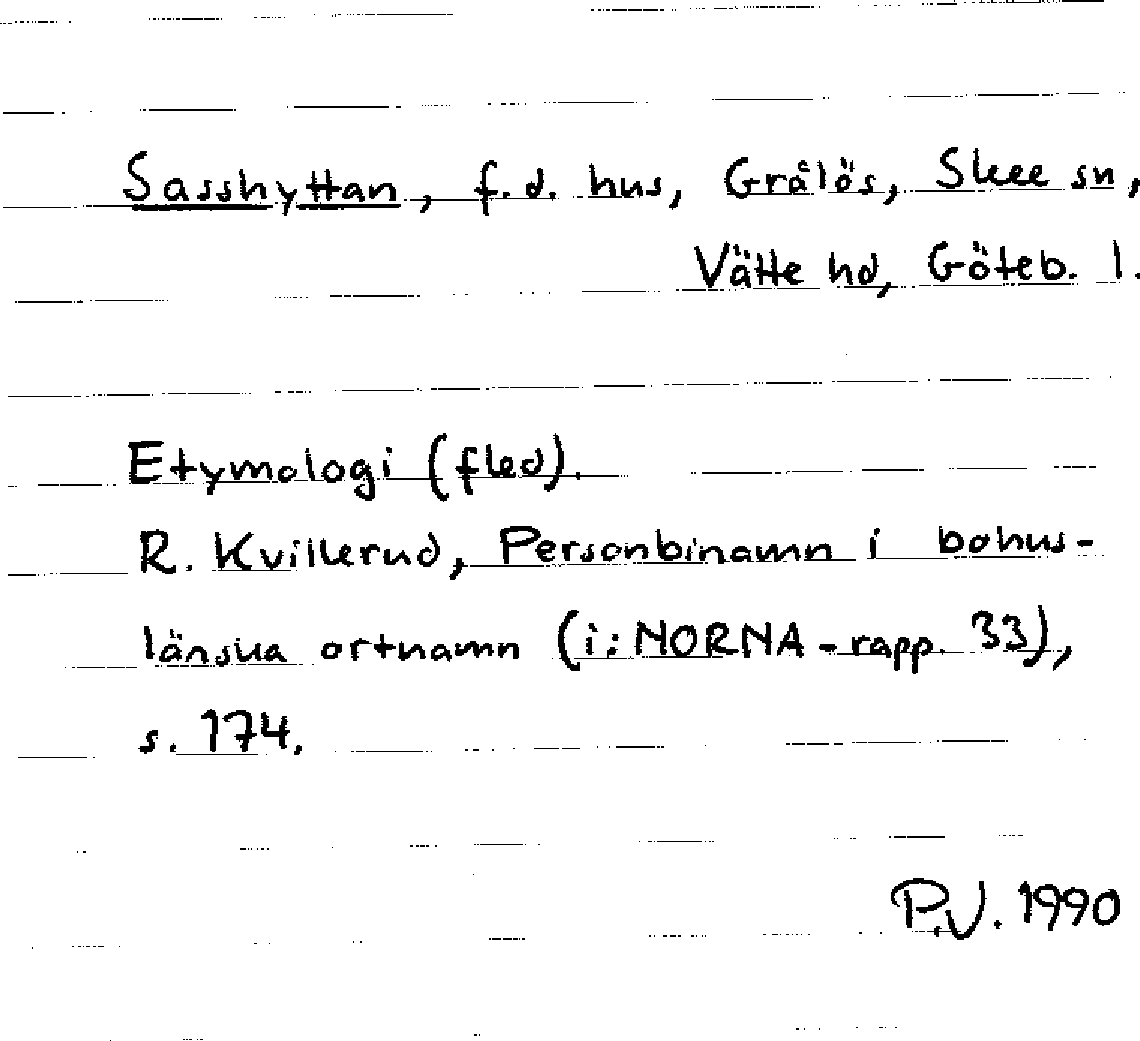 Sasshyttan, f.d. hus, Grålös, Skee sn,
Vätte hd, Göteb. l.
Etymologi (fled).
R. Kvillerud, Personbinamn i bohus-
länska ortnamn (i: NORNA-rapp. 33),
s. 174.
P.V. 1990